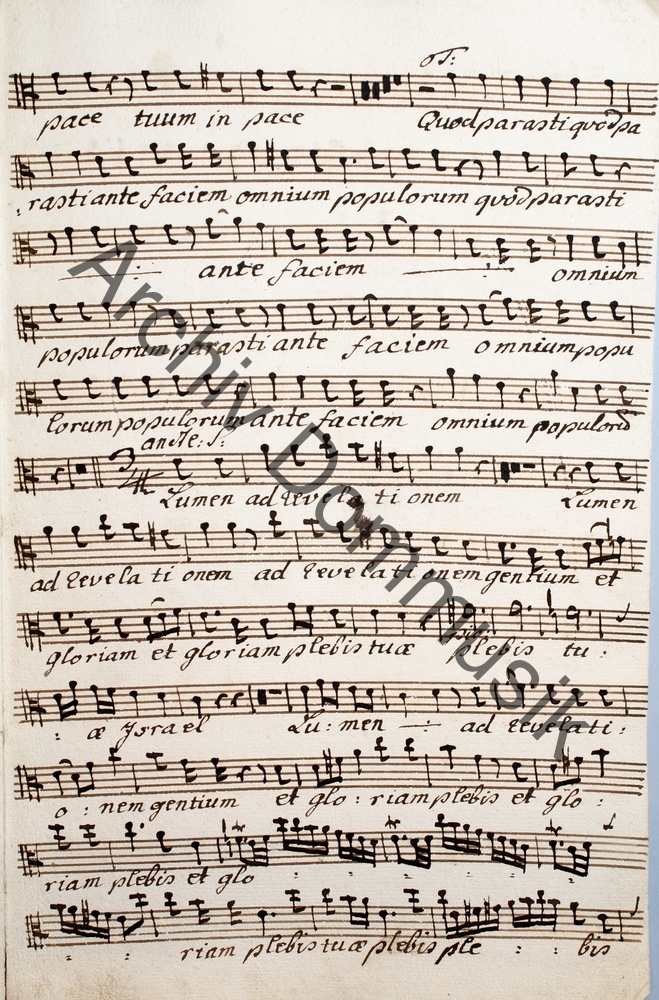 oT:
pace tuum in pace Quod parasti quod pa
: rasti ante faciem omnium populorum quod parasti
ante faciem omnium
populorum parasti ante faciem omnium popu
lorum populorum ante faciem omnium populorũ
andte: S:
3/4
Lumen ad revelationem Lumen
ad revelationem ad revelationem gentium et
gloriam et gloriam plebis tuæ plebis tu :
: æ Israel Lu: men ad revelati :
o : nem gentium et glo : riam plebis et glo :
riam plebis et glo
riam plebis tuæ plebis ple : : bis
Archiv Dommusik